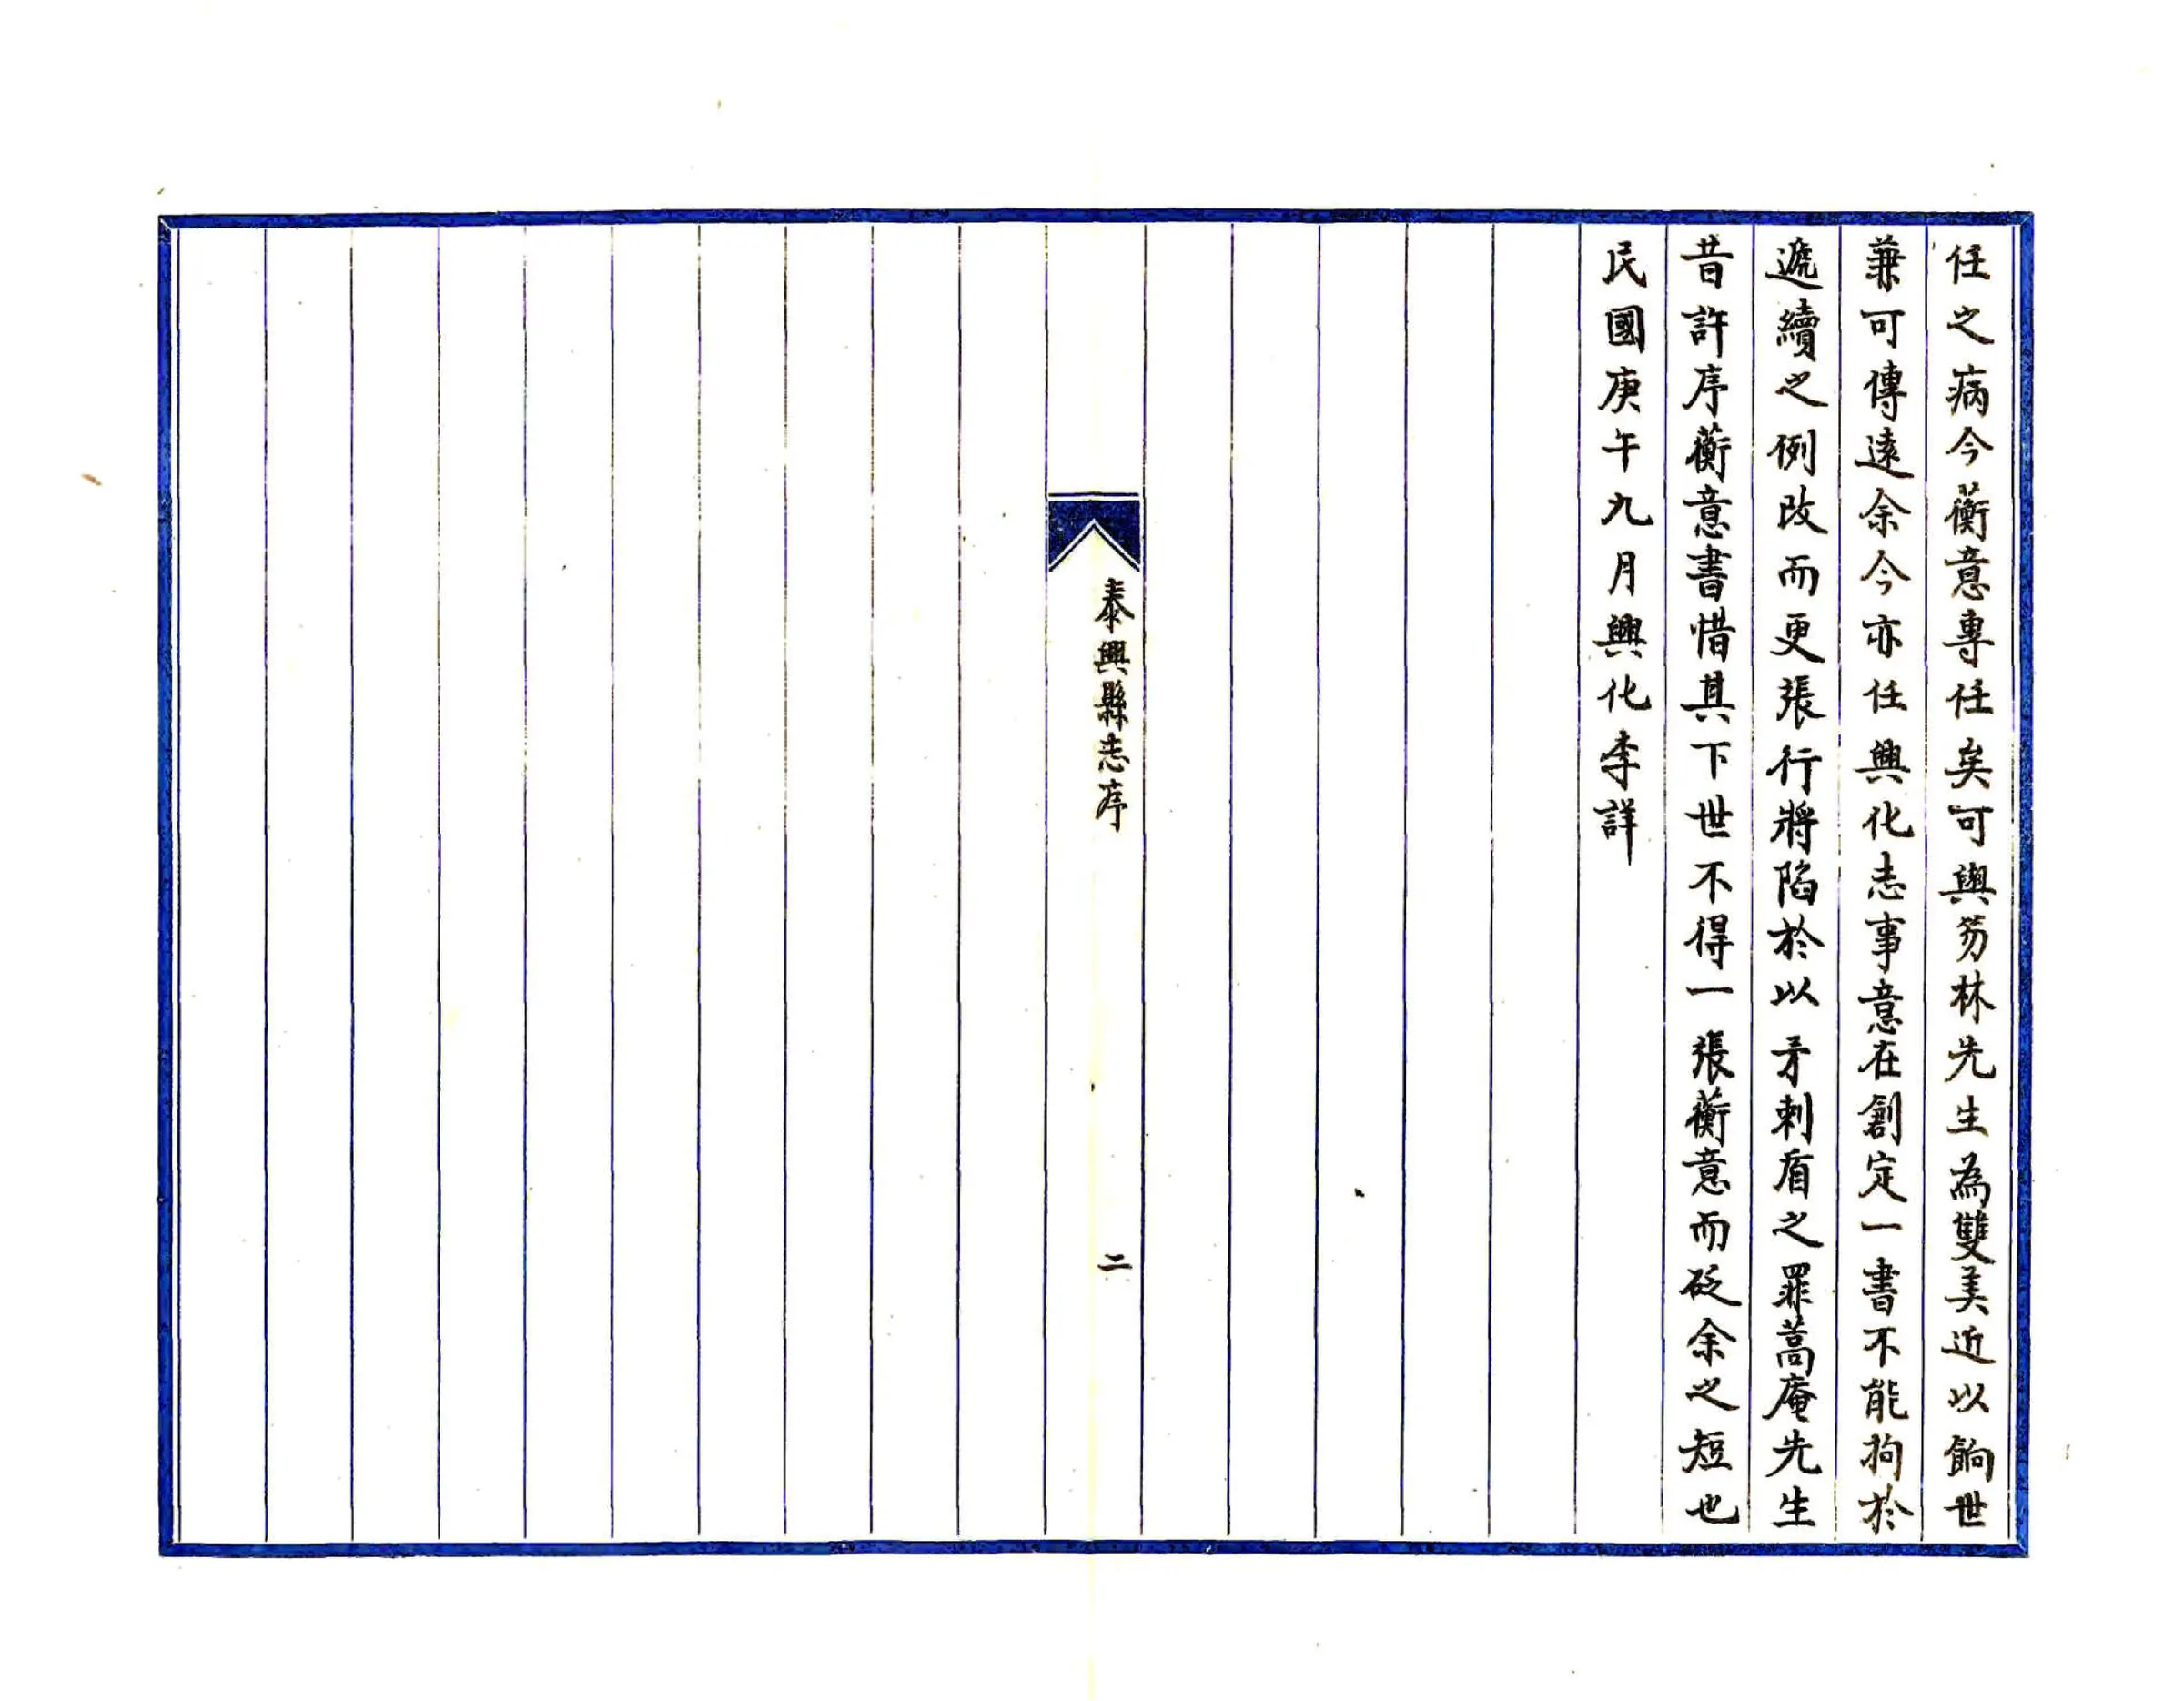 任之病今蘅意專任矣可與芴林先生為雙美近以餉世
兼可傳遠余今亦任興化志事意在創定一書不能拘於
遞續之例改而更張行將陷於以矛刺盾之罪蒿庵先生
昔許序蘅意書惜其下世不得一張蘅意而砭余之短也
民國庚午九月興化李詳
泰興縣志序
二